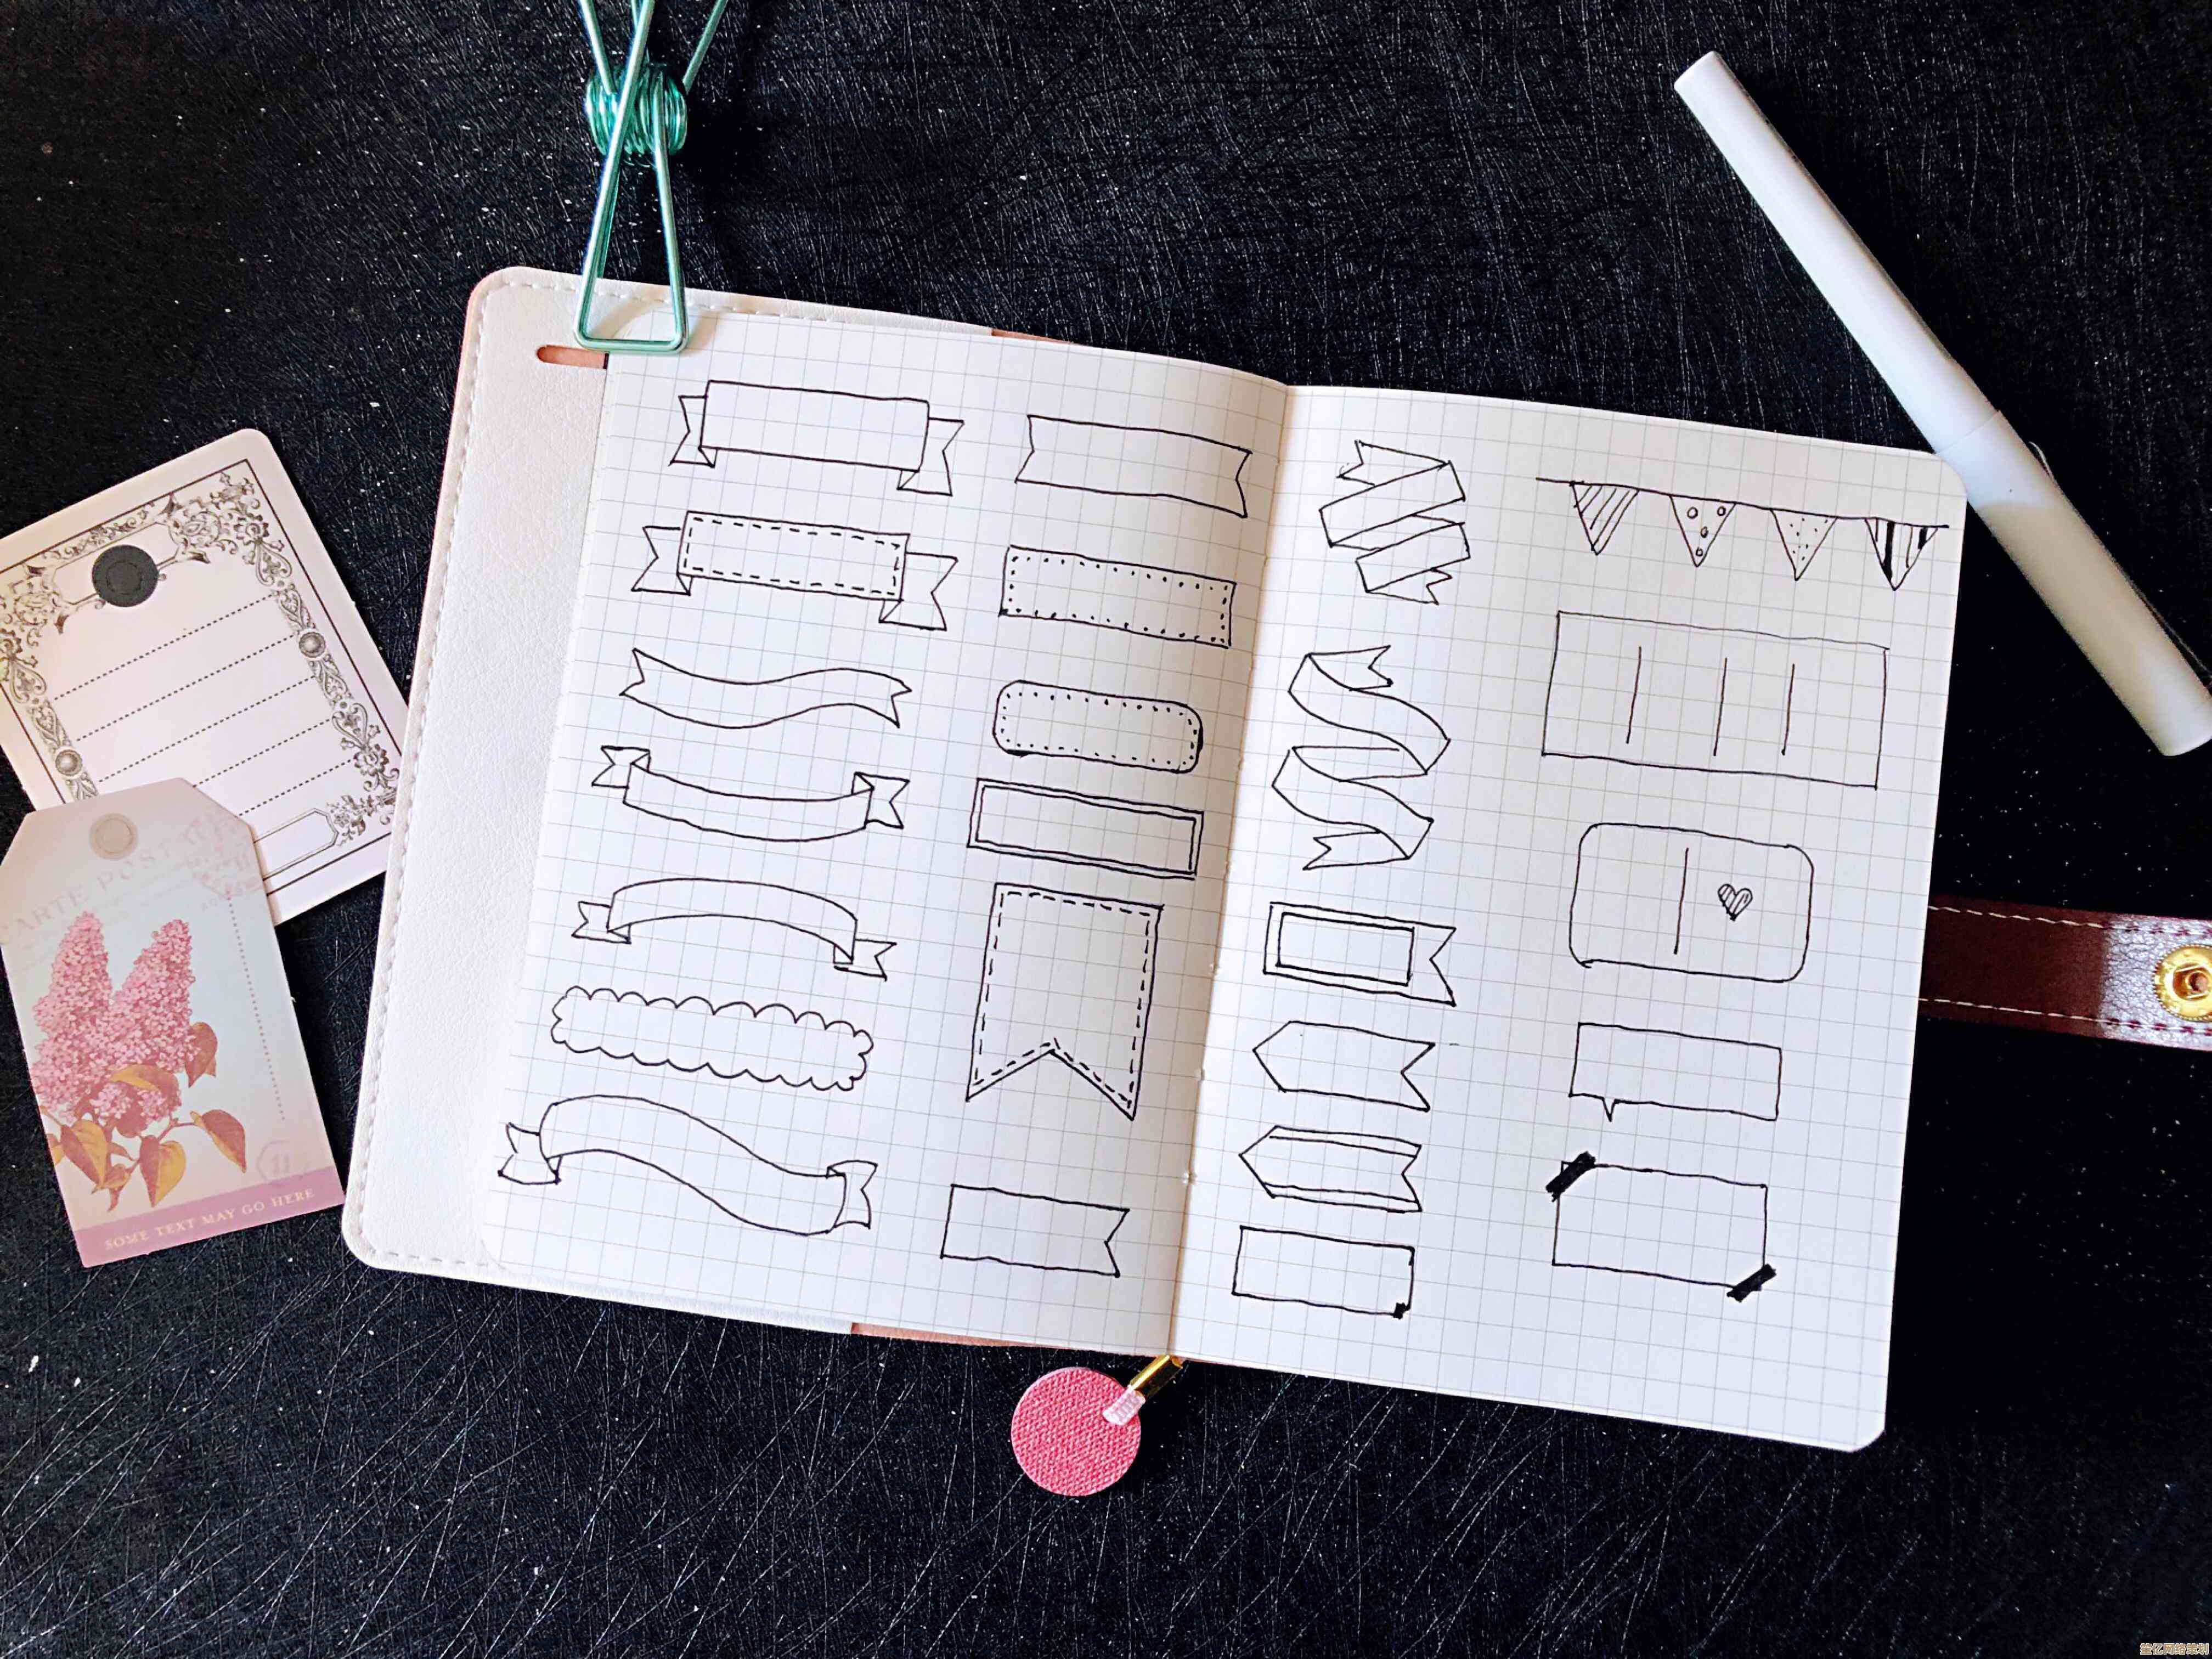 CARTE POSTALE
SOME TEXT MAY GO HERE
笙亿网络策划